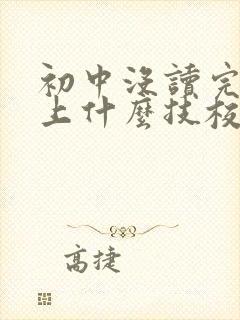 初中沒讀完
上什麼技校
高捷